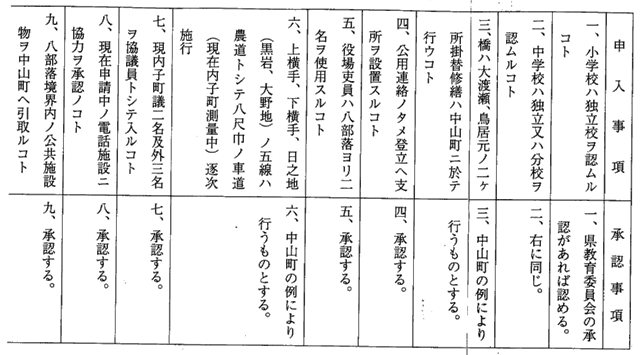 申入事項
一、小学校ハ独立校ヲ認ムル
コト
二、中学校ハ独立又ハ分校ヲ
認ムルコト
三、橋ハ大渡瀬、鳥居元ノ二ヶ
所掛替修繕ハ中山町ニ於テ
行ウコト
四、公用連絡ノタメ登立ヘ支
所ヲ設置スルコト
五、役場吏員ハ八部落ヨリ二
名ヲ使用スルコト
六、上横手、下横手、日之地
(黒岩、大野地)ノ五線ハ
農道トシテ八尺巾ノ車道
(現在内子町測量中)逐次
施行
七、現内子町議二名及外三名
ヲ協議員トシテ入ルコト
八、現在申請中ノ電話施設ニ
協力ヲ承認ノコト
九、八部落境界内ノ公共施設
物ヲ中山町ヘ引取ルコト
承認事項
一、県教育委員会の承
認があれば認める。
二、右に同じ。
三、中山町の例により
行うものとする。
四、承認する。
五、承認する。
六、中山町の例により
行うものとする。
七、承認する。
八、承認する。
九、承認する。